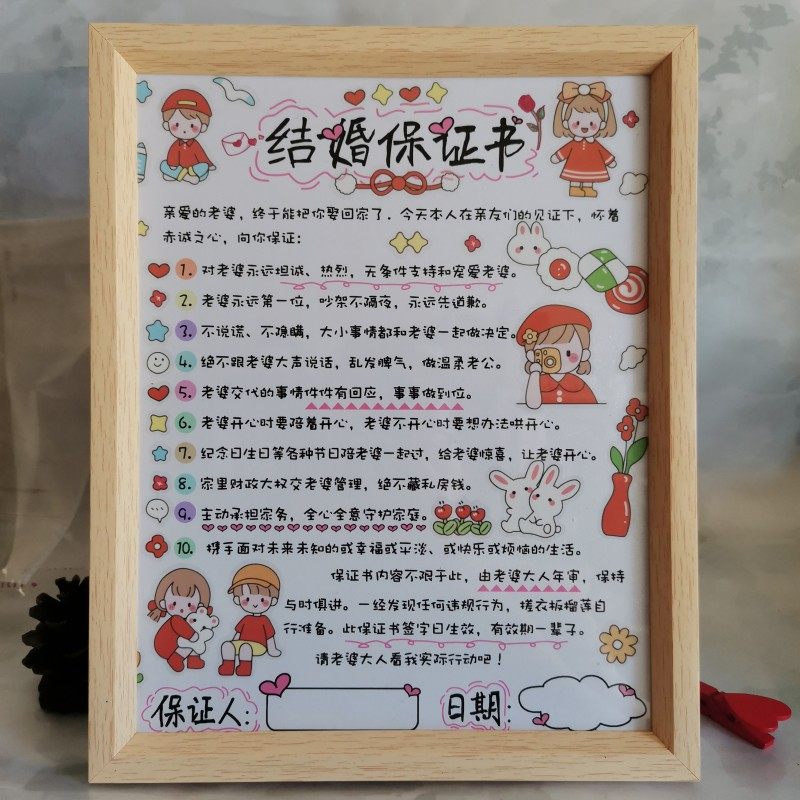 结婚保证书
亲爱的老婆，终于能把你娶回家了．今天本人在亲友们的见证下，怀着
赤诚之心，向你保证：
1. 对老婆永远坦诚、热烈，无条件支持和宠爱老婆。
2. 老婆永远第一位，吵架不隔夜，永远先道歉。
3. 不说谎、不隐瞒，大小事情都和老婆一起做决定。
4. 绝不跟老婆大声说话，乱发脾气，做温柔老公。
5. 老婆交代的事情件件有回应，事事做到位。
6. 老婆开心时要陪着开心，老婆不开心时要想办法哄开心。
7. 纪念日生日等各种节日陪老婆一起过，给老婆惊喜，让老婆开心。
8. 家里财政大权交老婆管理，绝不藏私房钱。
9. 主动承担家务，全心全意守护家庭。
10. 携手面对未来未知的或幸福或平淡、或快乐或烦恼的生活。
保证书内容不限于此，由老婆大人年审，保持
与时俱进。一经发现任何违规行为，搓衣板榴莲自
行准备。此保证书签字日生效，有效期一辈子。
请老婆大人看我实际行动吧！
保证人： 日期：